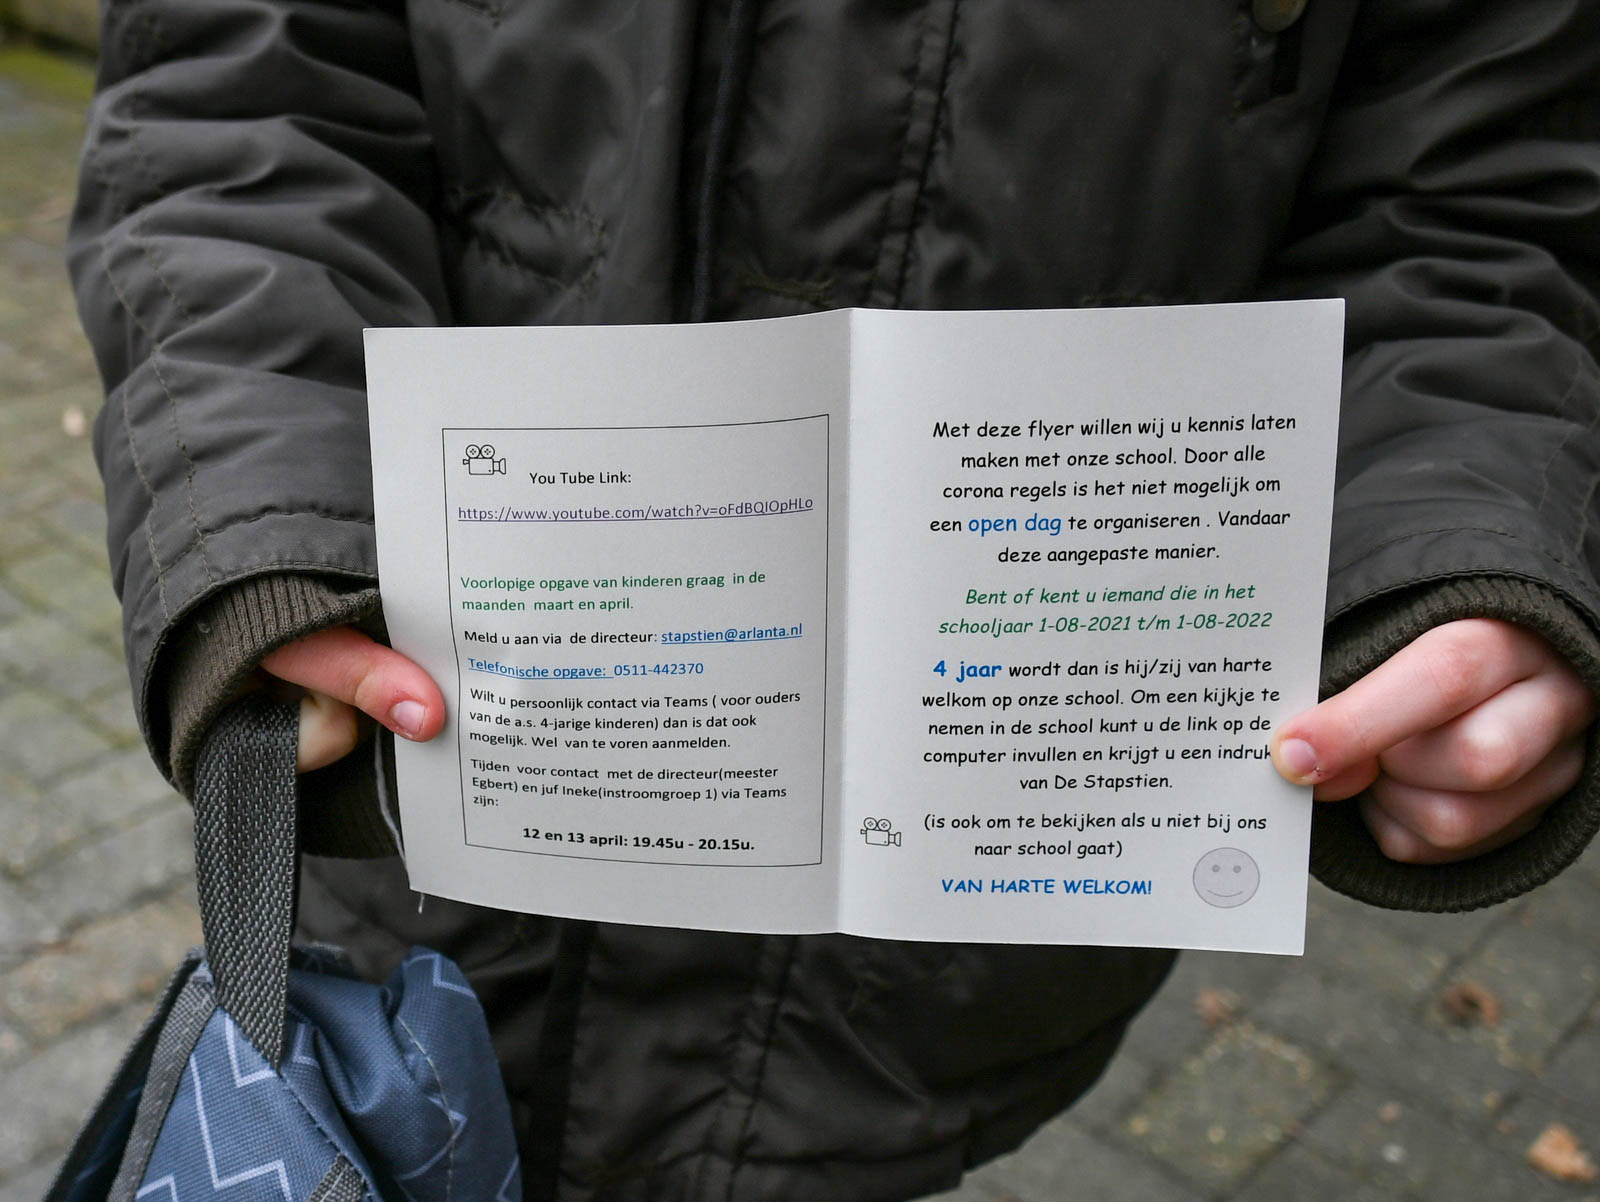 You Tube Link:
https://www.youtube.com/watch?v=oFdBQIOpHLo
Voorlopige opgave van kinderen graag in de
maanden maart en april.
Meld u aan via de directeur: stapstien@arlanta.nl
Telefonische opgave: 0511-442370
Wilt u persoonlijk contact via Teams ( voor ouders
van de a.s. 4-jarige kinderen) dan is dat ook
mogelijk. Wel van te voren aanmelden.
Tijden voor contact met de directeur(meester
Egbert) en juf Ineke(instroomgroep 1) via Teams
zijn:
12 en 13 april: 19.45u - 20.15u.
Met deze flyer willen wij u kennis laten
maken met onze school. Door alle
corona regels is het niet mogelijk om
een open dag te organiseren . Vandaar
deze aangepaste manier.
Bent of kent u iemand die in het
schooljaar 1-08-2021 t/m 1-08-2022
4 jaar wordt dan is hij/zij van harte
welkom op onze school. Om een kijkje te
nemen in de school kunt u de link op de
computer invullen en krijgt u een indruk
van De Stapstien.
(is ook om te bekijken als u niet bij ons
naar school gaat)
VAN HARTE WELKOM!